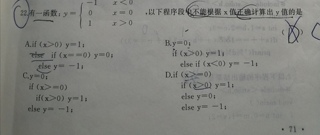 -1 x<0
22.有一函数,y={ 0 x=0 ,以下程序段中不能根据x值正确计算出y值的是
1 x>0
( )
A.if(x>0) y=1;
else if(x==0) y=0;
else y=-1;
B.y=0;
if(x>0) y=1;
else if(x<0) y=-1;
C.y=0;
if(x>=0)
if(x>0) y=1;
else y=-1;
D.if(x>=0)
if(x>0) y=1;
else y=0;
else y=-1;
·71·